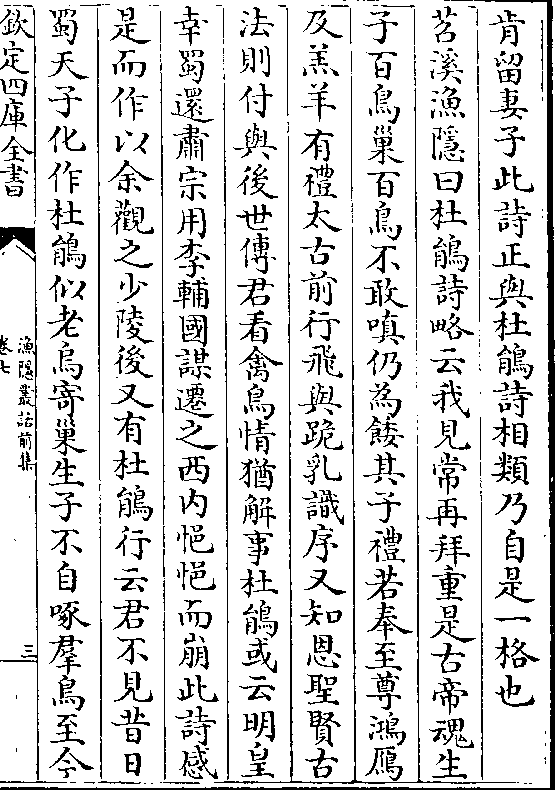 肯留妻子此詩正與杜鵑詩相類乃自是一格也
苕溪漁隱曰杜鵑詩略云我見常再拜重是古帝魂生
子百鳥巢百鳥不敢嗔仍為餧其子禮若奉至尊鴻鴈
及羔羊有禮太古前行飛與跪乳識序又知恩聖賢古
法則付與後世傳君看禽鳥情猶解事杜鵑或云明皇
幸蜀還肅宗用李輔國謀遷之西内悒悒而崩此詩感
是而作以余觀之少陵後又有杜鵑行云君不見昔日
蜀天子化作杜鵑似老烏寄巢生子不自啄羣鳥至今
欽定四庫全書
漁隱叢話前集
卷七
三